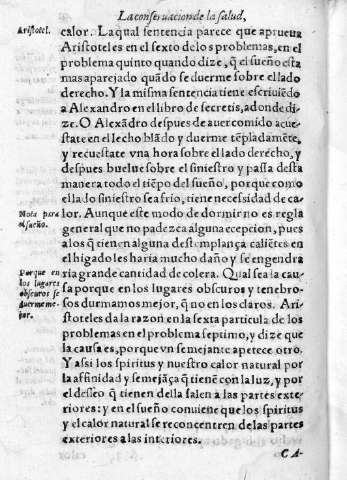 La conseruacion de la salud,
Aristotel.
calor. La qual sentencia parece que aprueua
Aristoteles en el sexto de los problemas, en el
problema quinto quando dize, q̃ el sueño esta
mas aparejado quãdo se duerme sobre el lado
derecho. Y la misma sentencia tiene escriuiẽdo
a Alexandro en el libro de secretis, adonde di-
ze. O Alexãdro despues de auer comido acue-
state en el lecho blãdo y duerme tẽpladamẽte,
y recuestate vna hora sobre el lado derecho, y
despues buelue sobre el siniestro y passa desta
manera todo el tiẽpo del sueño, porque como
el lado siniestro sea frio, tiene necessidad de ca-
Nota para
el sueño.
lor. Aunque este modo de dormir no es regla
general que no padezca alguna ecepcion, pues
a los q̃ tienen alguna destemplança caliẽtes en
el higado les haria mucho daño y se engendra
Porque en
los lugares
obscuros se
duerme me-
jor.
ria grande cantidad de colera. Qual sea la cau-
sa porque en los lugares obscuros y tenebro-
sos durmamos mejor, q̃ no en los claros. Ari-
stoteles da la razon en la sexta particula de los
problemas en el problema septimo, y dize que
la causa es, porque vn semejante apetece otro.
Y assi los spiritus y nuestro calor natural por
la affinidad y semejãça q̃ tienẽ con la luz, y por
el desseo q̃ tienen della salen a las partes exte-
riores: y en el sueño conuiene que los spiritus
y el calor natural se reconcentren de las partes
exteriores a las interiores.
C A-